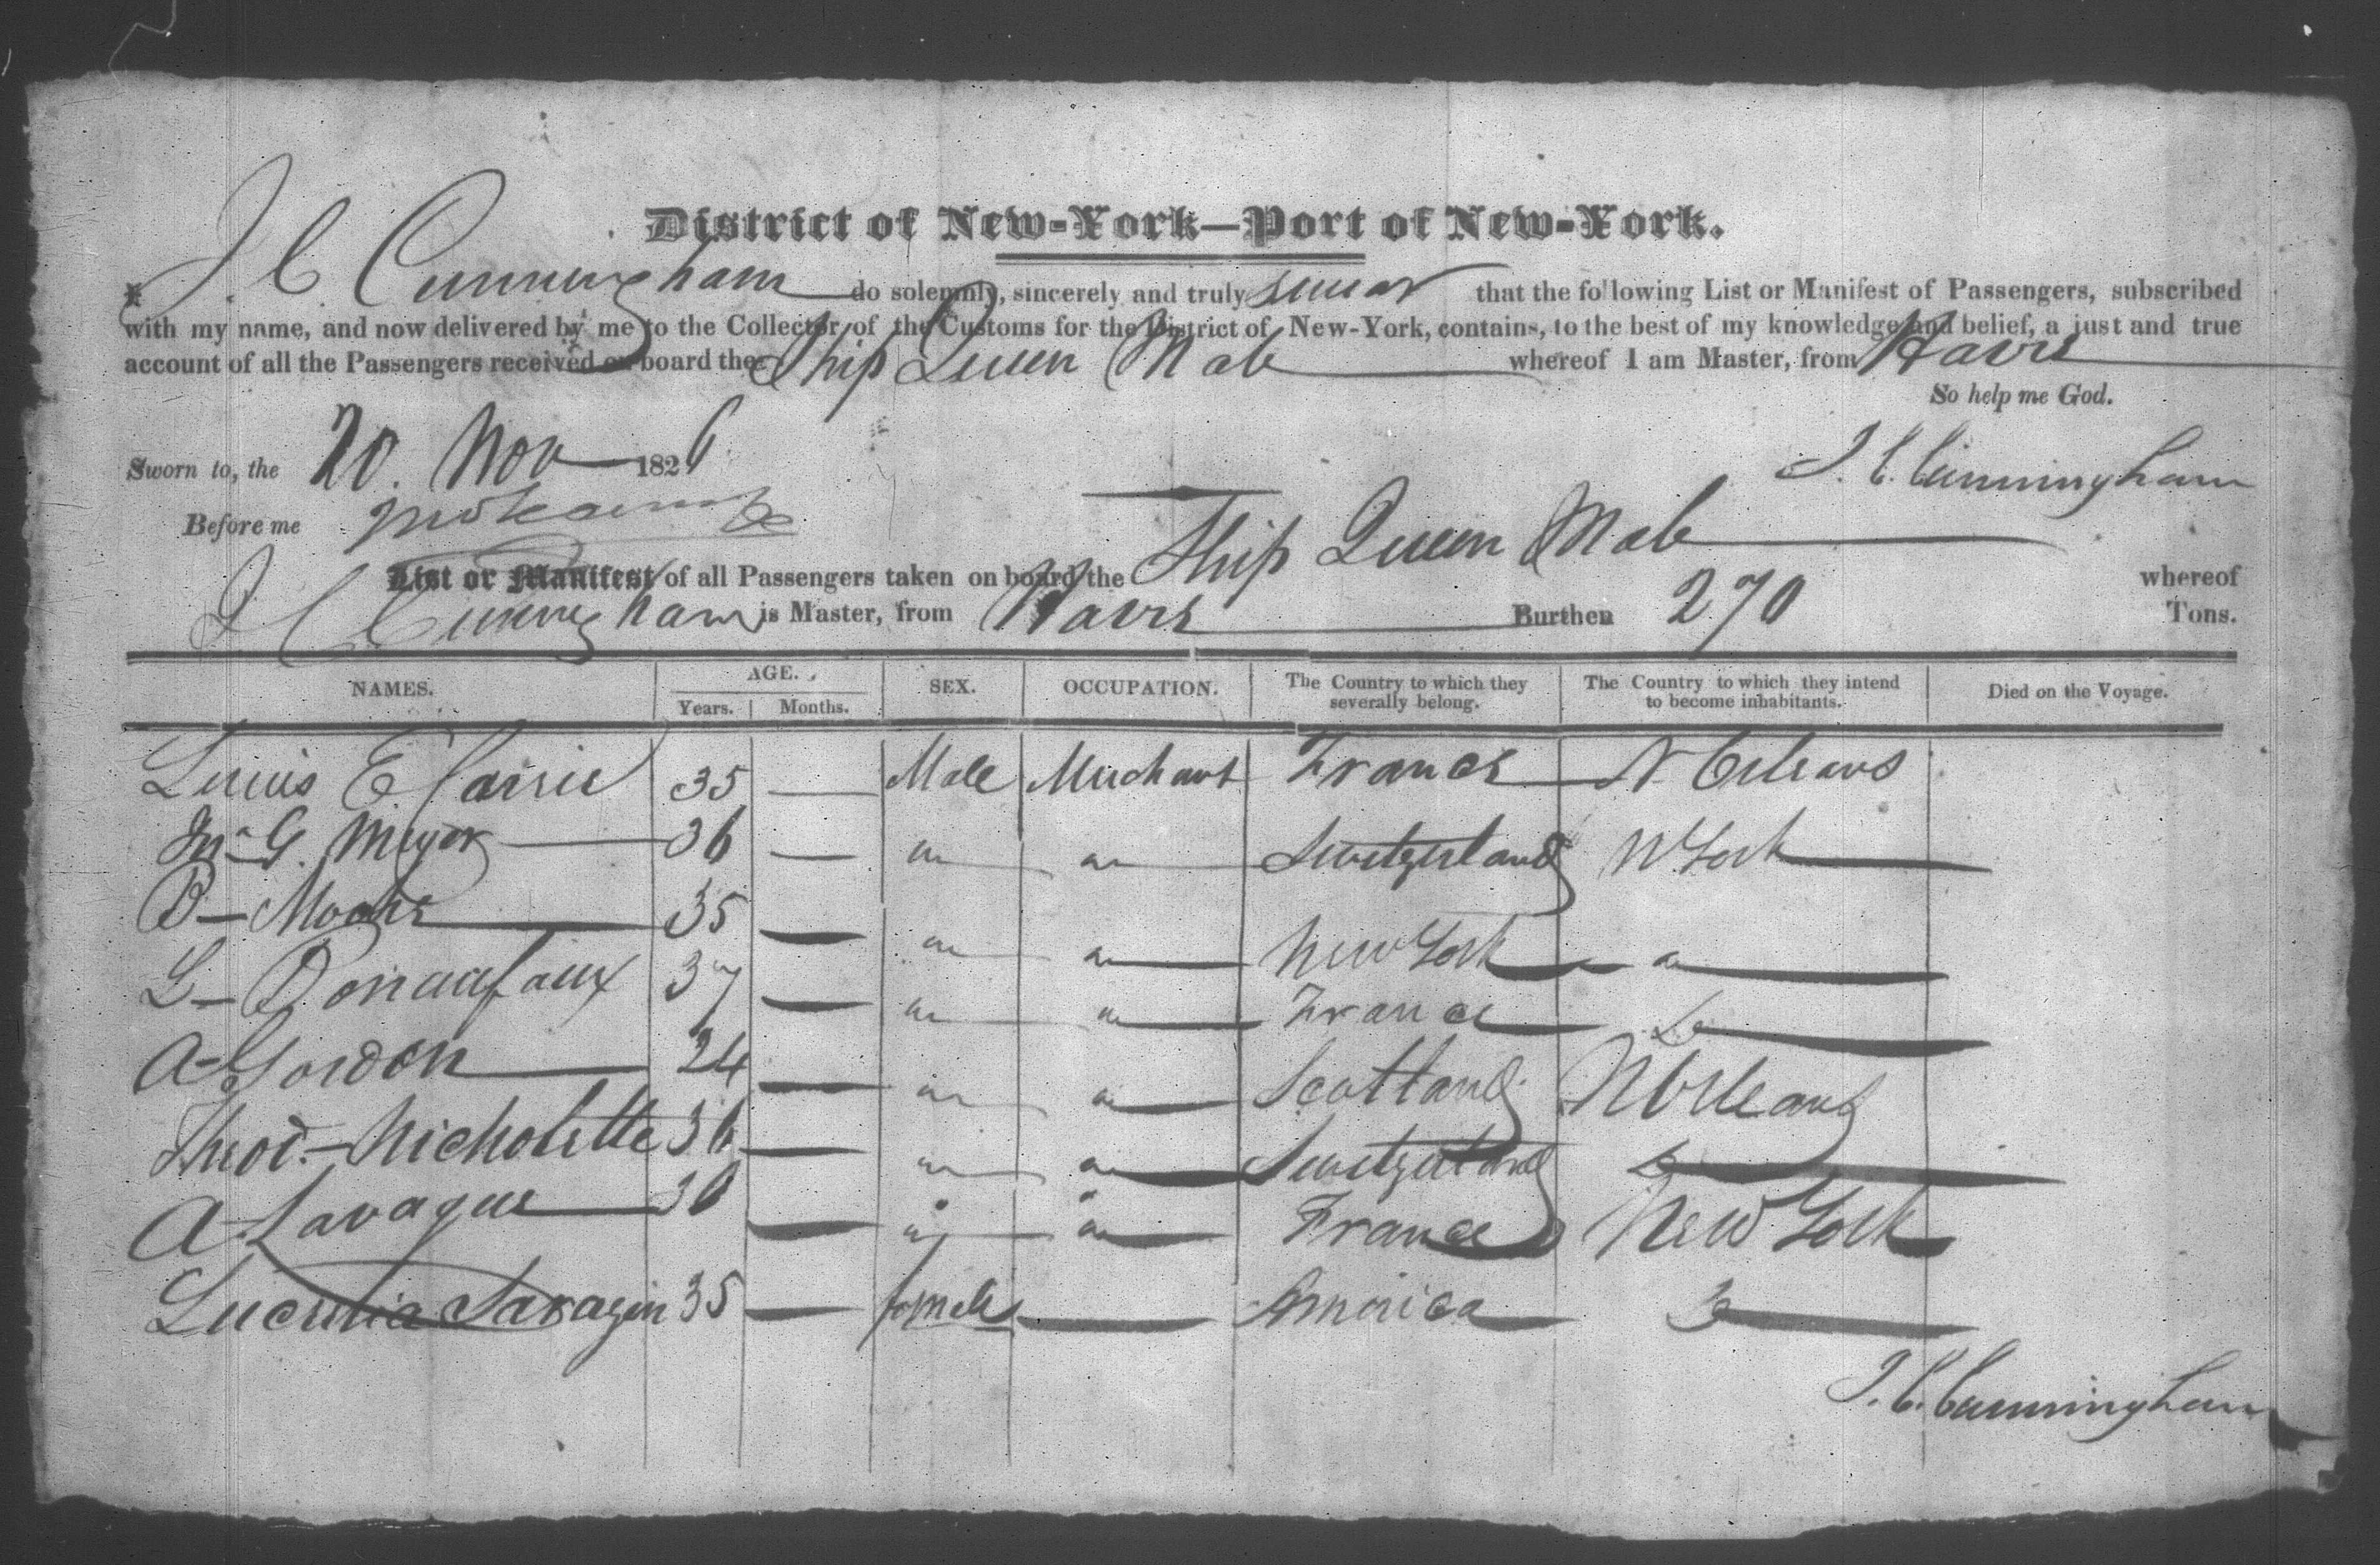 District of New-York—Port of New-York.
I J. C. Cunningham do solemnly, sincerely and truly swear that the following List or Manifest of Passengers, subscribed
with my name, and now delivered by me to the Collector of the Customs for the District of New-York, contains, to the best of my knowledge and belief, a just and true
account of all the Passengers received on board the Ship Queen Mab whereof I am Master, from Havre
So help me God.
Sworn to, the 20 Nov 1826
J. C. Cunningham
Before me
List or Manifest of all Passengers taken on board the Ship Queen Mab whereof
J C Cunningham is Master, from Havre Burthen 270 Tons.
NAMES. AGE. SEX. OCCUPATION. The Country to which they severally belong. The Country to which they intend to become inhabitants. Died on the Voyage.
Years. Months.
Louis E 35 — Male Merchant France N Orleans
G. Meyer 36 — " " Switzerland N York
B— 35 — " " New York "
L— 37 — " " France Do
A— Gordon 24 — " " Scotland N Orleans
Theod.— Nicholette 36 — " " Switzerland Do
A— Lavague 30 — " " France New York
Lucretia Saragin 35 — female — America Do
J. C. Cunningham